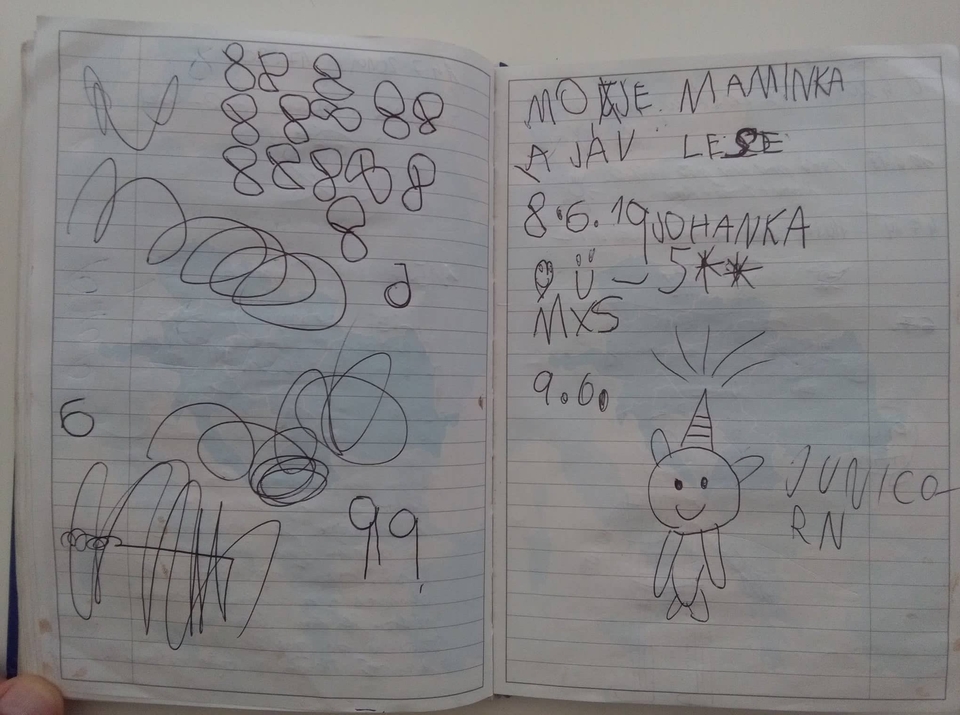 88 8
8 88 88
88888
8
6
99
MOJE MAMINKA
A JÁ V LESE
8.6.19 JOHANKA
5**
MXS
9.6.
JUNICO
RN